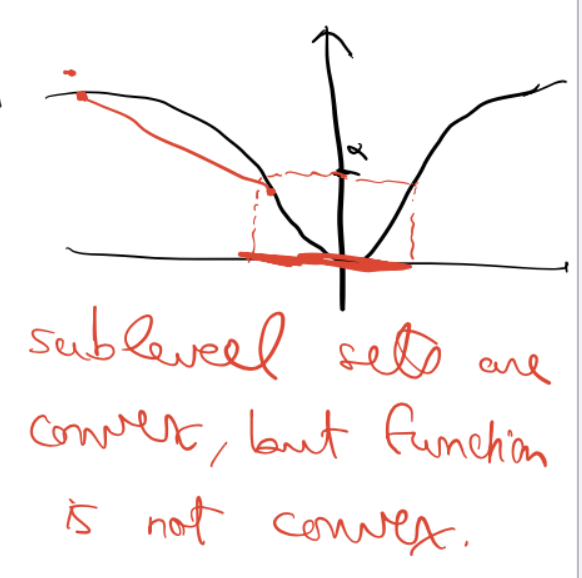 α
sublevel sets are
convex, but function
is not convex.